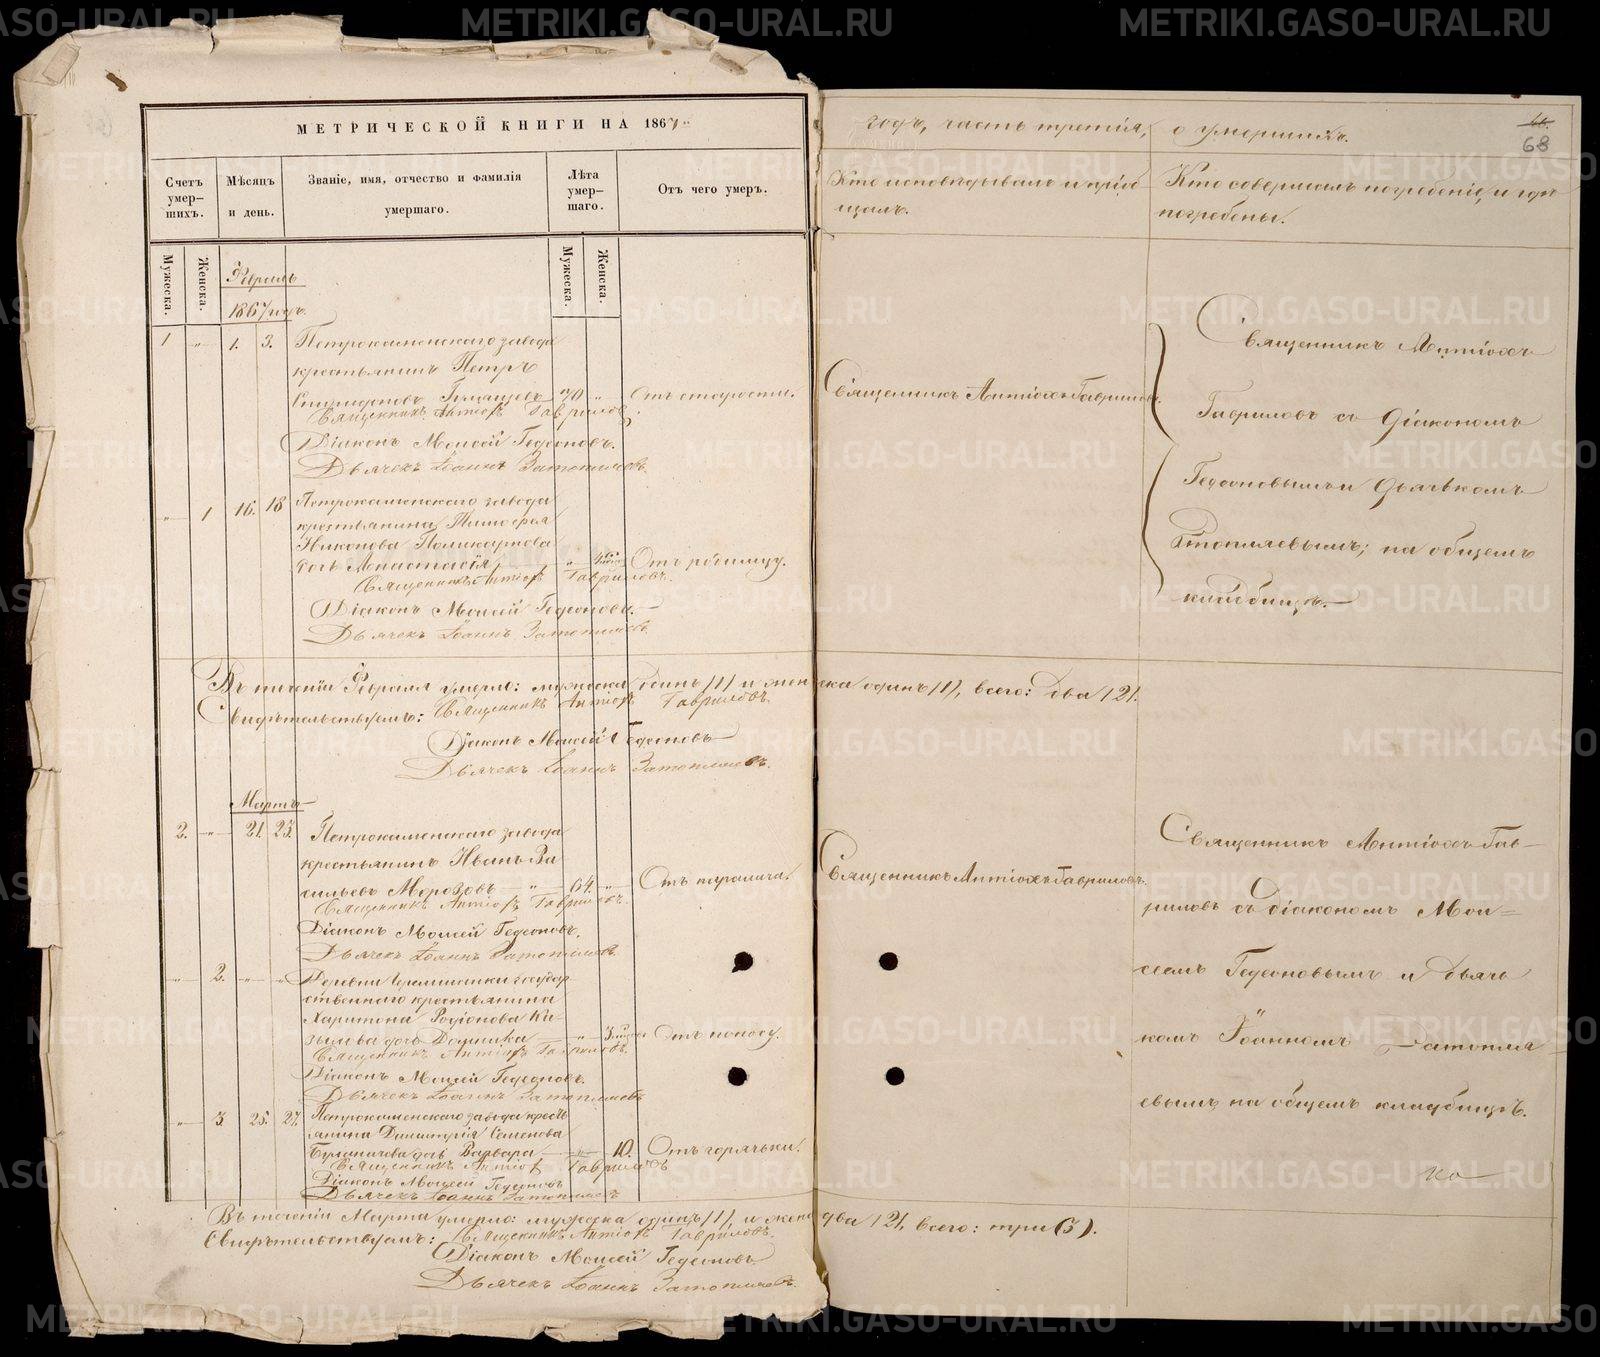 МЕТРИЧЕСКОЙ КНИГИ НА 1867
годъ, часть третія, о умершихъ.
68
Счетъ умер-шихъ.
Мѣсяцъ и день.
Званіе, имя, отчество и фамилія умершаго.
Лѣта умер-шаго.
Отъ чего умеръ.
Кто исповѣдывалъ и пріоб-
щалъ.
Кто совершалъ погребеніе, и гдѣ
погребены.
Мужеска.
Женска.
Мужеска.
Женска.
Февраль
1867 годъ.
1 „ 1. 3. Петрокаменскаго завода
крестьянинъ Петръ
Спиридоновъ 70 „ Отъ старости.
Священникъ Антіохъ Гавриловъ
Діаконъ Моисей Гедеоновъ.
Дьячекъ Іоаннъ Затопляевъ.
Священникъ Антіохъ Гавриловъ.
Священникъ Антіохъ
Гавриловъ съ Діакономъ
Гедеоновымъ и Дьячкомъ
Затопляевымъ; на общемъ
кладбищѣ.
„ 1 16. 18 Петрокаменскаго завода
крестьянина Тимофея
Никонова Поликарпова
дочь Анастасія „ Отъ родимцу.
Священникъ Антіохъ Гавриловъ.
Діаконъ Моисей Гедеоновъ.
Дьячекъ Іоаннъ Затопляевъ
Въ теченіи Февраля умерло: мужеска одинъ /1/ и женска одинъ /1/, всего: два /2/.
Свидѣтельствуемъ: Священникъ Антіохъ Гавриловъ.
Діаконъ Моисей Гедеоновъ
Дьячекъ Іоаннъ Затопляевъ.
Мартъ
2. „ 21. 23. Петрокаменскаго завода
крестьянинъ Иванъ Ва
сильевъ Морозовъ „ 64. „ Отъ паралича.
Священникъ Антіохъ Гавриловъ.
Діаконъ Моисей Гедеоновъ.
Дьячекъ Іоаннъ Затопляевъ
Священникъ Антіохъ Гавриловъ.
Священникъ Антіохъ Гав-
риловъ съ діакономъ Мои=
сеемъ Гедеоновымъ и дьяч
комъ Іоанномъ Затопля
евымъ, на общемъ кладбищѣ.
„ 2. „ „ Деревни Черемшанки государ
ственнаго крестьянина
Харитона Родіонова Ки-
зылова дочь Домника „ 3 Отъ поносу.
Священникъ Антіохъ Гавриловъ.
Діаконъ Моисей Гедеоновъ.
Дьячекъ Іоаннъ Затопляевъ
„ 3. 25. 27. Петрокаменскаго завода кресть
янина Димитрія Семенова
дочь Варвара „ 10. Отъ горячьки.
Священникъ Антіохъ Гавриловъ
Діаконъ Моисей Гедеоновъ
Дьячекъ Іоаннъ Затопляевъ
Въ теченіи Марта умерло: мужеска одинъ /1/, и женска два /2/, всего: три (3).
Свидѣтельствуемъ: Священникъ Антіохъ Гавриловъ.
Діаконъ Моисей Гедеоновъ
Дьячекъ Іоаннъ Затопляевъ.
METRIKI.GASO-URAL.RU